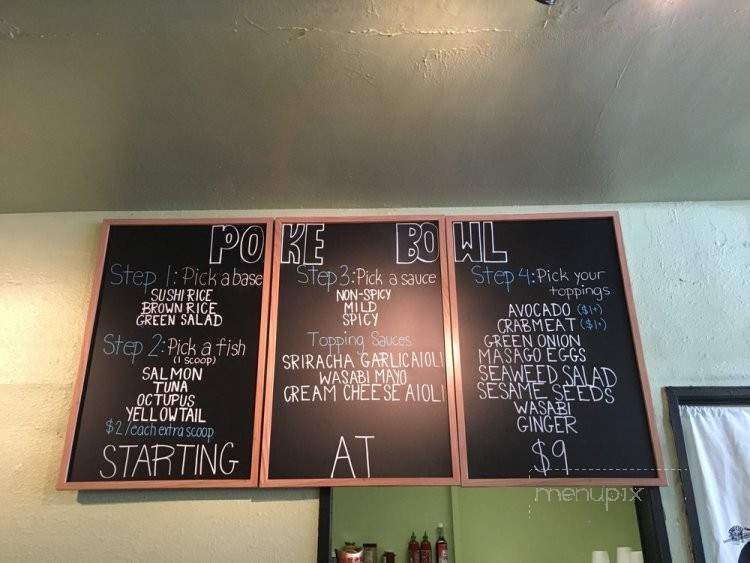 POKE BOWL
Step 1: Pick a base
SUSHI RICE
BROWN RICE
GREEN SALAD
Step 2: Pick a fish
(1 SCOOP)
SALMON
TUNA
OCTUPUS
YELLOWTAIL
$2/each extra scoop
Step 3: Pick a sauce
NON-SPICY
MILD
SPICY
Topping Sauces
SRIRACHA GARLIC AIOLI
WASABI MAYO
CREAM CHEESE AIOLI
Step 4: Pick your
toppings
AVOCADO ($1+)
CRABMEAT ($1+)
GREEN ONION
MASAGO EGGS
SEAWEED SALAD
SESAME SEEDS
WASABI
GINGER
STARTING AT $9
menupix